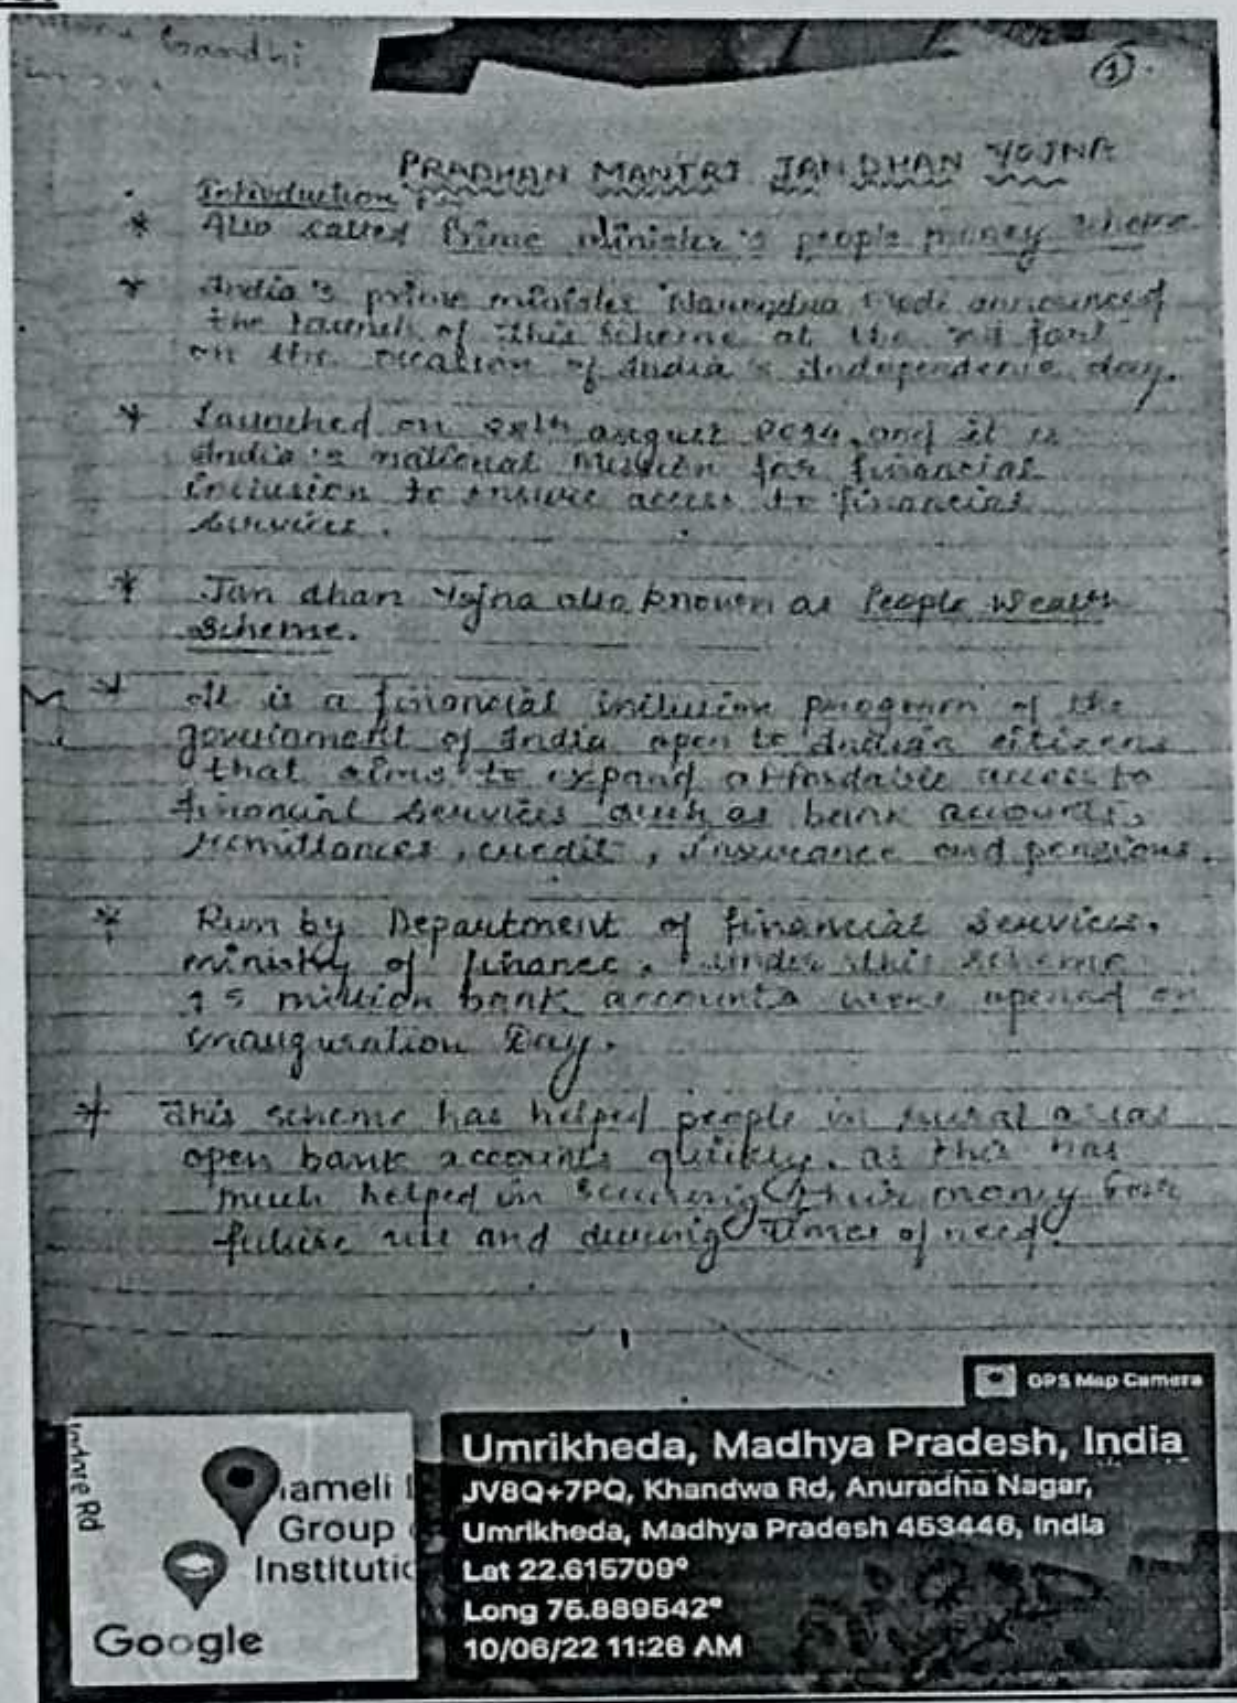 Gandhi
1
PRADHAN MANTRI JAN DHAN YOJNA
Introduction
* Also called Prime Minister's people money scheme
* India's prime minister Narendra Modi announced
the launch of this scheme at the red fort
on the occasion of India's Independence day.
* Launched on 28th august 2014, and it is
India's national mission for financial
inclusion to ensure access to financial
services.
* Jan dhan Yojna also known as People Wealth
scheme.
* It is a financial inclusion program of the
government of India open to Indian citizens
that aims to expand affordable access to
financial services such as bank accounts,
remittances, credit, insurance and pensions.
* Run by Department of financial services.
ministry of finance. under this scheme
15 million bank accounts were opened on
inauguration Day.
* This scheme has helped people in rural areas
open bank accounts quickly. as this has
much helped in securing their money for
future use and during times of need.
GPS Map Camera
Indore Rd
ameli
Group
Institutio
Google
Umrikheda, Madhya Pradesh, India
JV8Q+7PQ, Khandwa Rd, Anuradha Nagar,
Umrikheda, Madhya Pradesh 453446, India
Lat 22.615709°
Long 75.889542°
10/06/22 11:26 AM